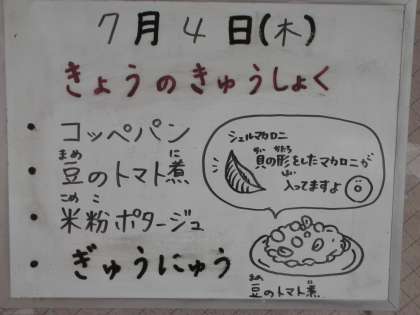 7月4日(木)
きょうのきゅうしょく
・コッペパン
まめ に
・豆のトマト煮
こめ こ
・米粉ポタージュ
・ぎゅうにゅう
シェルマカロニ
かい かたち
貝の形をしたマカロニが
はい
入ってますよ
まめ
豆のトマト煮